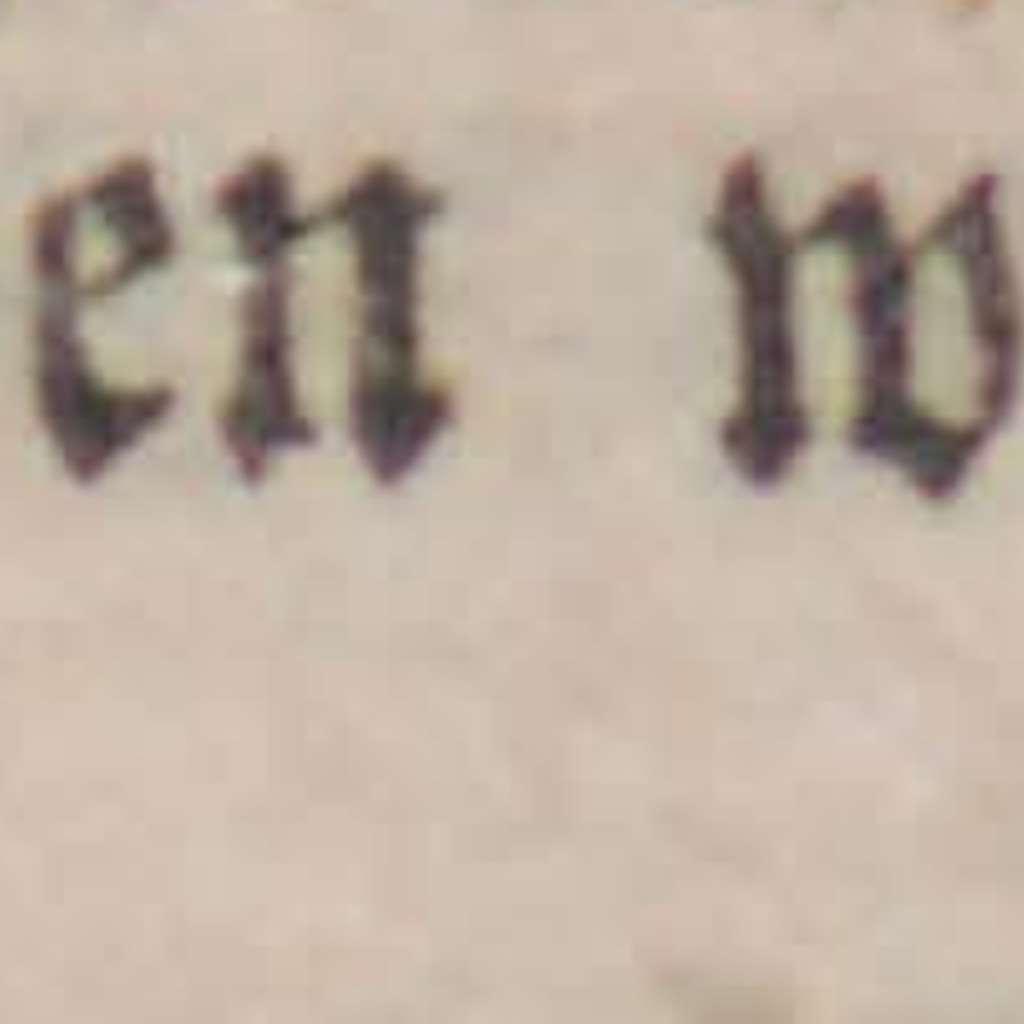 en w